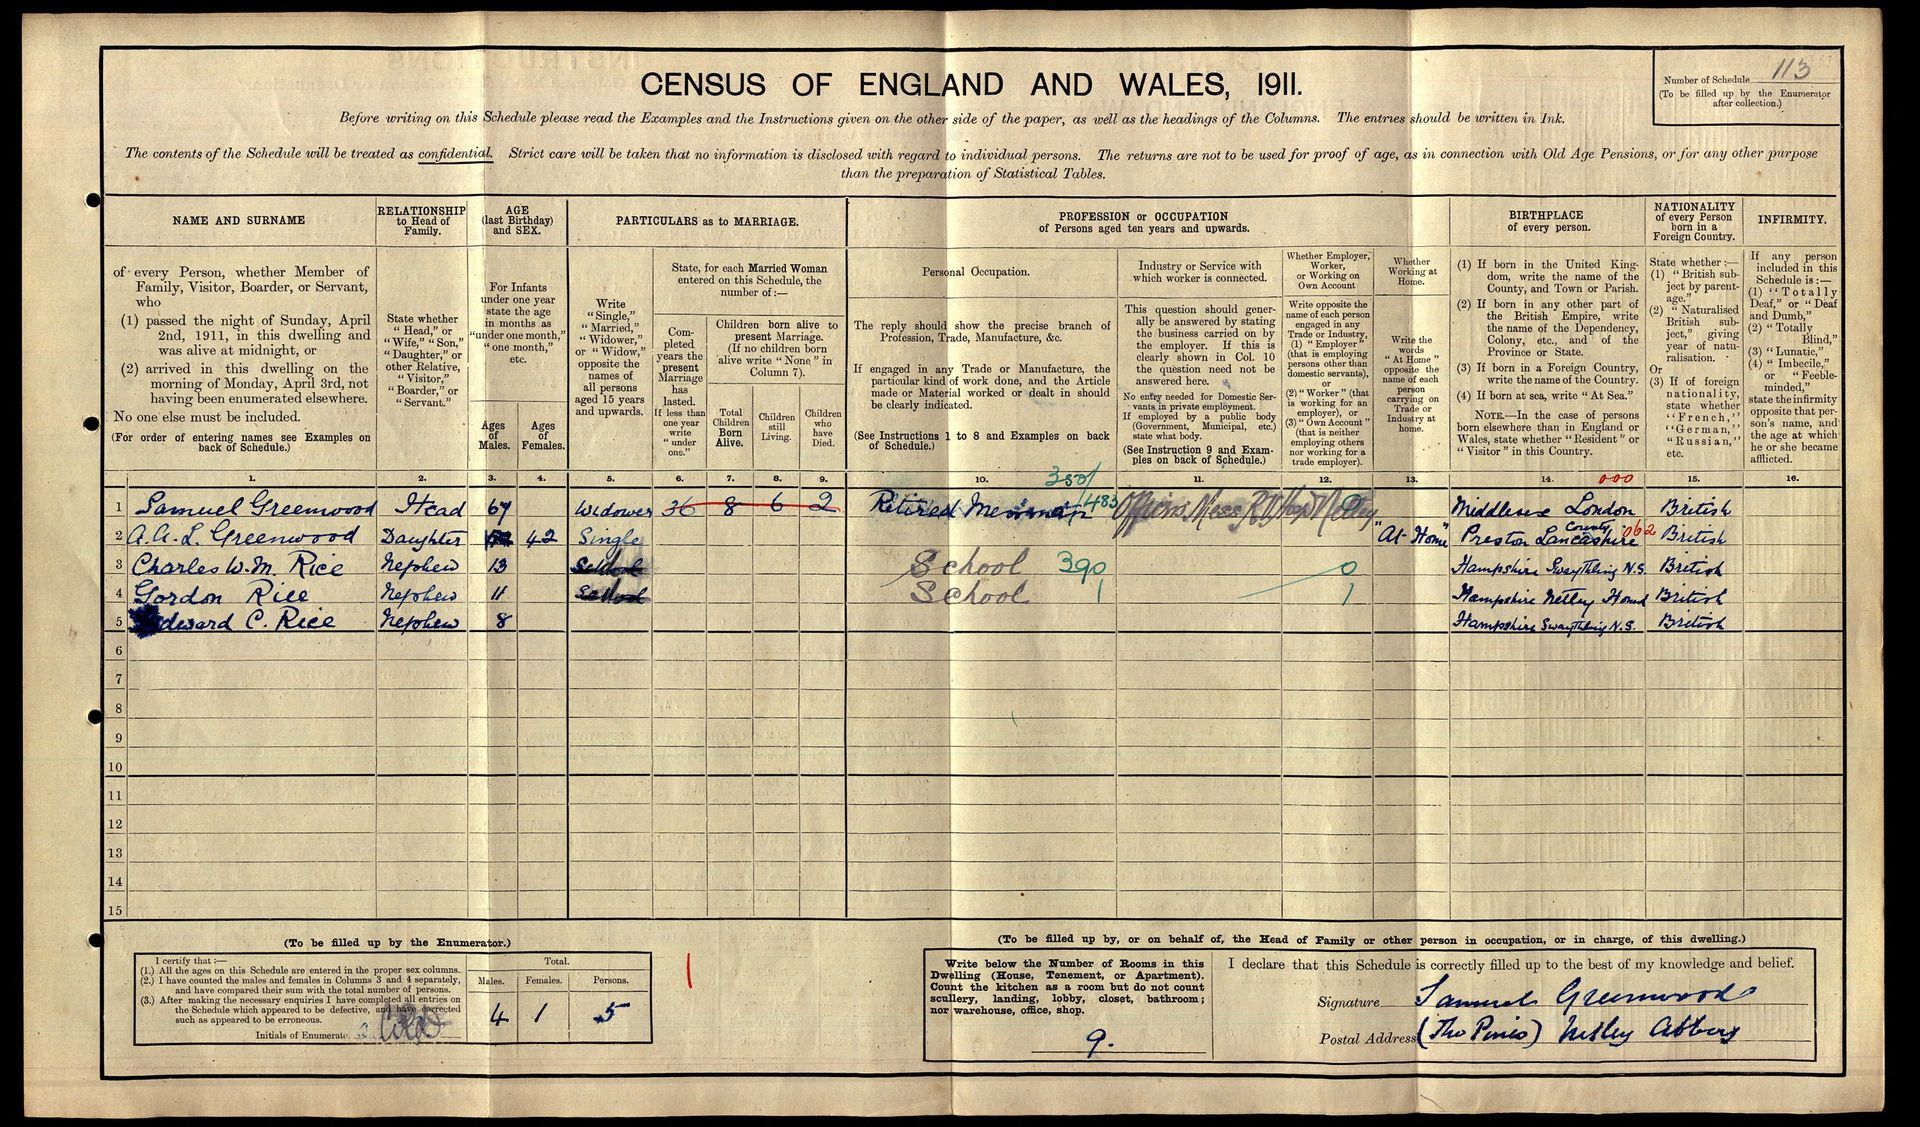 CENSUS OF ENGLAND AND WALES, 1911.
Number of Schedule 113
(To be filled up by the Enumerator
after collection.)
Before writing on this Schedule please read the Examples and the Instructions given on the other side of the paper, as well as the headings of the Columns. The entries should be written in Ink.
The contents of the Schedule will be treated as confidential. Strict care will be taken that no information is disclosed with regard to individual persons. The returns are not to be used for proof of age, as in connection with Old Age Pensions, or for any other purpose
than the preparation of Statistical Tables.
NAME AND SURNAME
of every Person, whether Member of
Family, Visitor, Boarder, or Servant,
who
(1) passed the night of Sunday, April
2nd, 1911, in this dwelling and
was alive at midnight, or
(2) arrived in this dwelling on the
morning of Monday, April 3rd, not
having been enumerated elsewhere.
No one else must be included.
(For order of entering names see Examples on
back of Schedule.)
RELATIONSHIP
to Head of
Family.
State whether
"Head," or
"Wife," "Son,"
"Daughter," or
other Relative,
"Visitor,"
"Boarder," or
"Servant."
AGE
(last Birthday)
and SEX.
For Infants
under one year
state the age
in months as
"under one month,"
"one month,"
etc.
Ages
of
Males.
Ages
of
Females.
PARTICULARS as to MARRIAGE.
Write
"Single,"
"Married,"
"Widower,"
or "Widow,"
opposite the
names of
all persons
aged 15 years
and upwards.
State, for each Married Woman
entered on this Schedule, the
number of:—
Com-
pleted
years the
present
Marriage
has
lasted.
If less than
one year
write
"under
one."
Children born alive to
present Marriage.
(If no children born
alive write "None" in
Column 7).
Total
Children
Born
Alive.
Children
still
Living.
Children
who
have
Died.
PROFESSION or OCCUPATION
of Persons aged ten years and upwards.
Personal Occupation.
The reply should show the precise branch of
Profession, Trade, Manufacture, &c.
If engaged in any Trade or Manufacture, the
particular kind of work done, and the Article
made or Material worked or dealt in should
be clearly indicated.
(See Instructions 1 to 8 and Examples on back
of Schedule.)
Industry or Service with
which worker is connected.
This question should gener-
ally be answered by stating
the business carried on by
the employer. If this is
clearly shown in Col. 10
the question need not be
answered here.
No entry needed for Domestic Ser-
vants in private employment.
If employed by a public body
(Government, Municipal, etc.)
state what body.
(See Instruction 9 and Exam-
ples on back of Schedule.)
Whether Employer,
Worker,
or Working on
Own Account
Write opposite the
name of each person
engaged in any
Trade or Industry,
(1) "Employer"
(that is employing
persons other than
domestic servants),
or
(2) "Worker" (that
is working for an
employer), or
(3) "Own Account"
(that is neither
employing others
nor working for a
trade employer).
Whether
Working at
Home.
Write the
words
"At Home"
opposite the
name of each
person
carrying on
Trade or
Industry at
home.
BIRTHPLACE
of every person.
(1) If born in the United King-
dom, write the name of the
County, and Town or Parish.
(2) If born in any other part of
the British Empire, write
the name of the Dependency,
Colony, etc., and of the
Province or State.
(3) If born in a Foreign Country,
write the name of the Country.
(4) If born at sea, write "At Sea."
NOTE.—In the case of persons
born elsewhere than in England or
Wales, state whether "Resident" or
"Visitor" in this Country.
NATIONALITY
of every Person
born in a
Foreign Country.
State whether:—
(1) "British sub-
ject by parent-
age."
(2) "Naturalised
British sub-
ject," giving
year of natu-
ralisation.
Or
(3) If of foreign
nationality,
state whether
"French,"
"German,"
"Russian,"
etc.
INFIRMITY.
If any person
included in this
Schedule is:—
(1) "Totally
Deaf," or "Deaf
and Dumb,"
(2) "Totally
Blind,"
(3) "Lunatic,"
(4) "Imbecile,"
or "Feeble-
minded,"
state the infirmity
opposite that per-
son's name, and
the age at which
he or she became
afflicted.
1. 2. 3. 4. 5. 6. 7. 8. 9. 10. 11. 12. 13. 14. 15. 16.
350/ 000
1 Samuel Greenwood Head 67 Widower 36 8 6 2 Retired 483 Officers Mess Middlesex London British
2 A.A.L. Greenwood Daughter 42 Single "At Home" Preston Lancashire County 062 British
3 Charles W.M. Rice Nephew 13 School School 390 0 Hampshire Swaythling N.S. British
4 Gordon Rice Nephew 11 School School 1 1 Hampshire Netley Hound British
5 Edward C. Rice Nephew 8 Hampshire Swaythling N.S. British
6
7
8
9
10
11
12
13
14
15
(To be filled up by the Enumerator.)
I certify that:—
(1.) All the ages on this Schedule are entered in the proper sex columns.
(2.) I have counted the males and females in Columns 3 and 4 separately,
and have compared their sum with the total number of persons.
(3.) After making the necessary enquiries I have completed all entries on
the Schedule which appeared to be defective, and have corrected
such as appeared to be erroneous.
Initials of Enumerator
Total.
Males. Females. Persons.
4 1 5
1
(To be filled up by, or on behalf of, the Head of Family or other person in occupation, or in charge, of this dwelling.)
Write below the Number of Rooms in this
Dwelling (House, Tenement, or Apartment).
Count the kitchen as a room but do not count
scullery, landing, lobby, closet, bathroom;
nor warehouse, office, shop.
9.
I declare that this Schedule is correctly filled up to the best of my knowledge and belief.
Signature Samuel Greenwood
Postal Address (The Pines) Netley Abbey